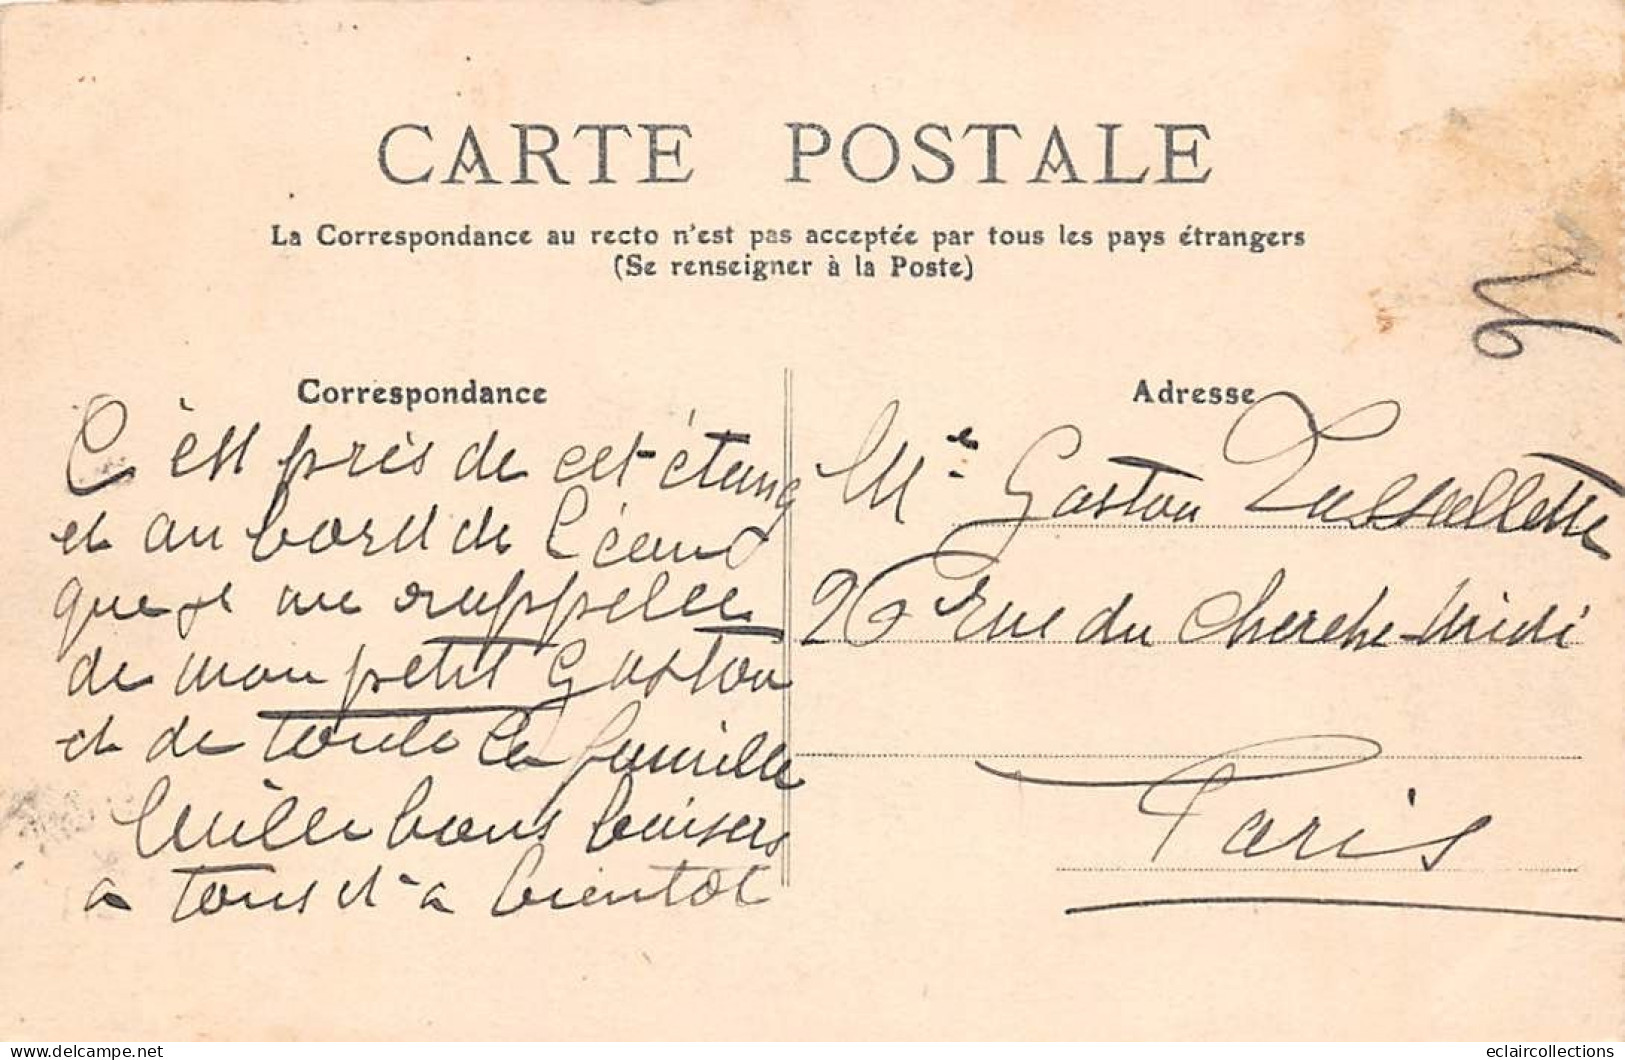 CARTE POSTALE
La Correspondance au recto n'est pas acceptée par tous les pays étrangers
(Se renseigner à la Poste)
Correspondance
C'est près de cet étang
et au bord de l'eau
que je me rappelle
de mon petit Gaston
et de toute la famille
Mille bons baisers
a tous et a bientot
Adresse
Me Gaston
26 rue du Cherche-Midi
Paris
delcampe.net
eclaircollections